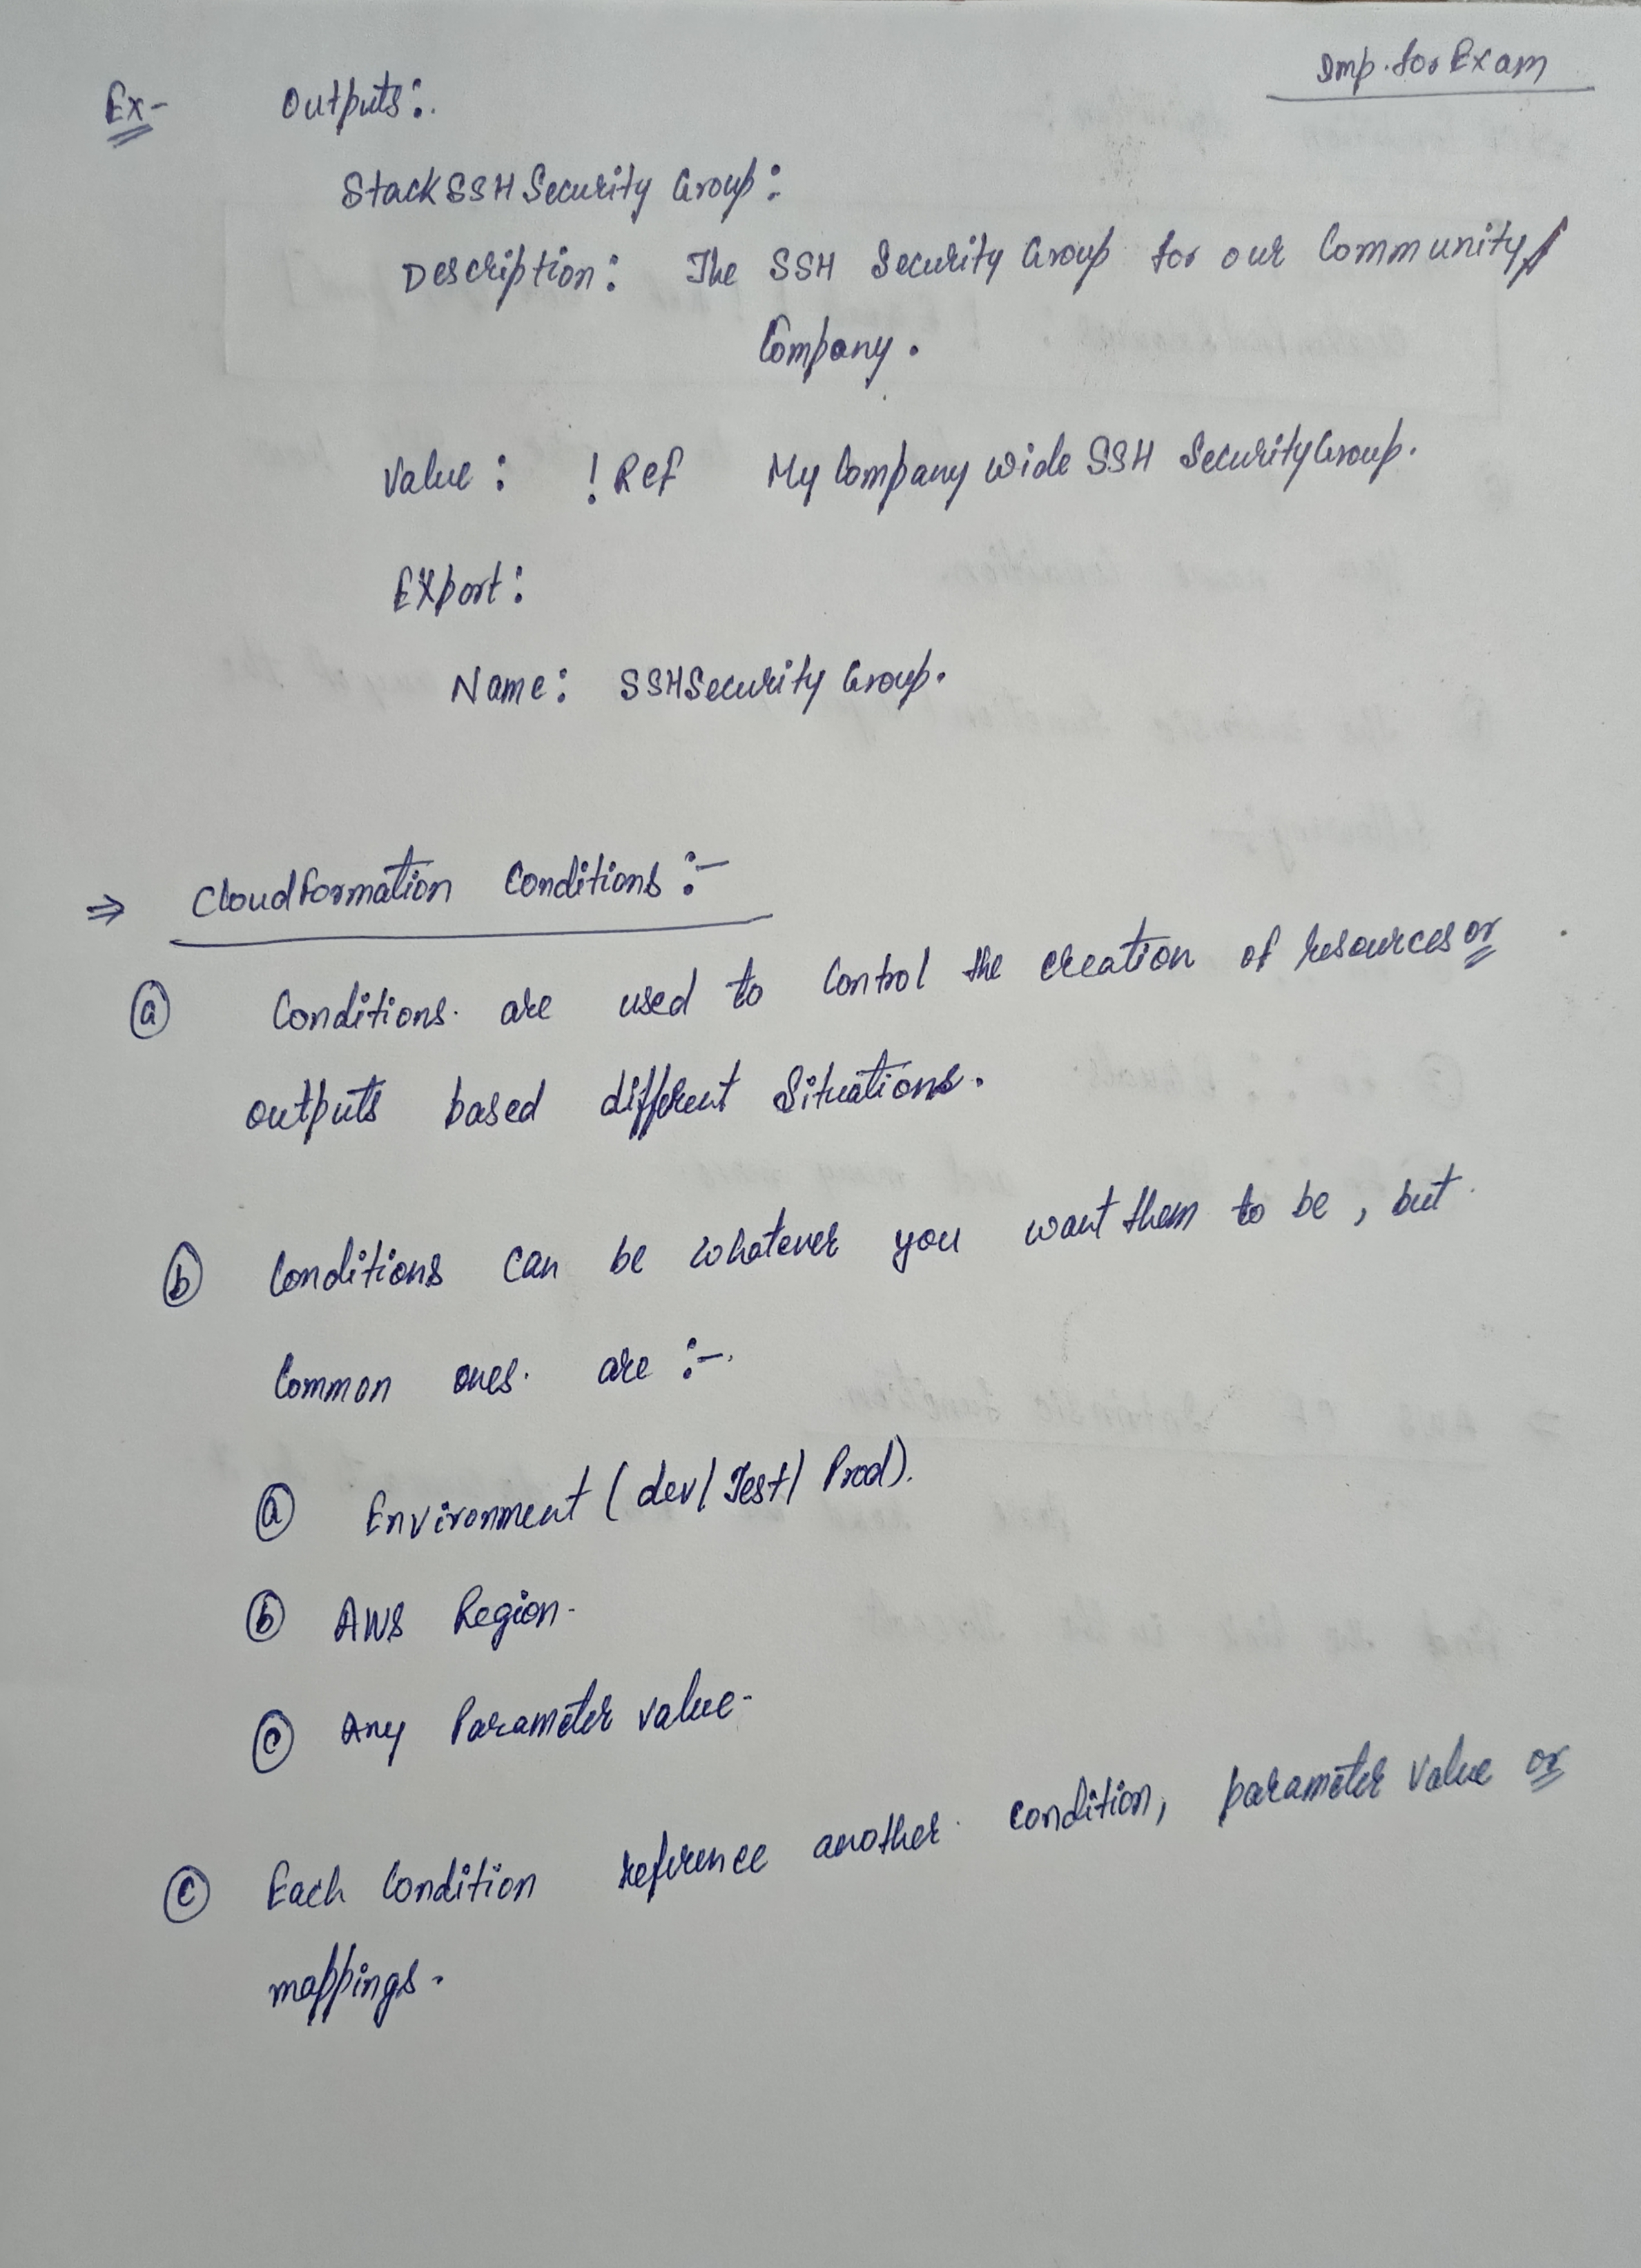 Imp. for Exam
Ex- Outputs:
StackSSHSecurity Group:
Description: The SSH Security Group for our Community
Company.
Value: !Ref MyCompanywideSSH SecurityGroup.
Export:
Name: SSHSecurityGroup.
⇒ Cloudformation Conditions:-
(a) Conditions are used to Control the creation of resources or
outputs based different Situations.
(b) Conditions can be whatever you want them to be, but
Common ones are :-
(a) Environment (dev/Test/Prod).
(b) AWS Region.
(c) Any Parameter value.
(c) Each Condition reference another condition, parameter value or
mappings.